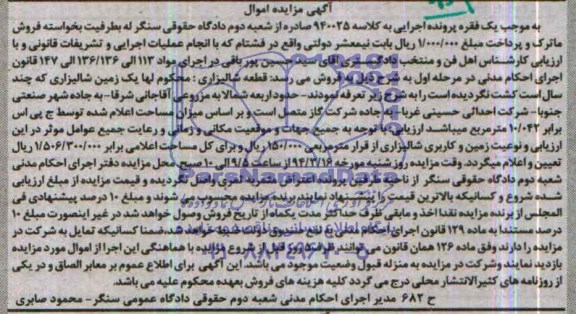 آگهی مزایده اموال
به موجب یک فقره پرونده اجرایی به کلاسه ۹۴۰۰۲۵ صادره از شعبه دوم دادگاه حقوقی سنگر له بطرفیت بخواسته فروش
ماترک و پرداخت مبلغ ۱/۰۰۰/۰۰۰ ریال بابت نیمعشر دولتی واقع در فشتام که با انجام عملیات اجرایی و تشریفات قانونی و با
ارزیابی کارشناس اهل فن و منتخب دادگاه آقای سید حسین پورباقی در اجرای مواد ۱۱۳ الی ۱۳۶/۱۳۶ الی ۱۴۷ قانون
اجرای احکام مدنی در مرحله اول به شرح ذیل به فروش می رسد: قطعه شالیزاری: محکوم لها یک زمین شالیزاری که چند
سال است کشت نگردیده است را به شرح زیر تعرفه نمودند- حدود اربعه شمالا به مزروعی آقاجانی شرقا- به جاده شهر صنعتی
جنوبا- شرکت احداثی حسینی غربا- به جاده شرکت گاز متصل است و بر اساس میزان مساحت اعلام شده توسط جی پی اس
برابر ۱۰/۰۴۲ مترمربع میباشد ارزیابی با توجه به جمیع جهات و موقعیت مکانی و زمانی و رعایت جمیع عوامل موثر در این
ارزیابی و نوعیت زمین و کاربری شالیزاری از قرار مترمربعی ۱۵۰/۰۰۰ ریال و برای کل مساحت اعلامی برابر ۱/۵۰۶/۳۰۰/۰۰۰ ریال
تعیین و اعلام میگردد. وقت مزایده روز شنبه مورخه ۹۴/۳/۱۶ از ساعت ۹/۵ الی ۱۰ صبح محل مزایده دفتر اجرای احکام مدنی
شعبه دوم دادگاه حقوقی سنگر از ناحیه طرفین پرونده اعتراض مثمرثمری واصل نگردیده و قیمت مزایده از مبلغ ارزیابی
شده شروع و کسانیکه بالاترین قیمت را پیشنهاد نمایند برنده مزایده محسوب می شوند و مبلغ ۱۰ درصد پیشنهادی فی
المجلس از برنده مزایده نقدا اخذ و مابقی ظرف حداکثر مدت یکماه از تاریخ فروش وصول خواهد شد در غیر اینصورت مبلغ ۱۰
درصد مستندا به ماده ۱۲۹ قانون اجرای احکام مدنی به نفع دولت ضبط خواهد شد، ضمنا کسانیکه تمایل به شرکت در
مزایده را دارند وفق ماده ۱۲۶ همان قانون می توانند ظرف روز قبل از شروع مزایده با هماهنگی این اجرا از اموال مورد مزایده
بازدید نمایند و شرکت در مزایده به منزله قبول وضعیت موجود می باشد. این آگهی برای اطلاع عموم بر معابر الصاق و در یکی
از روزنامه های کثیرالانتشار محلی درج می گردد کلیه هزینه های فروش بعهده محکوم علیه می باشد.
ح ۶۸۲ مدیر اجرای احکام مدنی شعبه دوم حقوقی دادگاه عمومی سنگر- محمود صابری
ParsNamadData